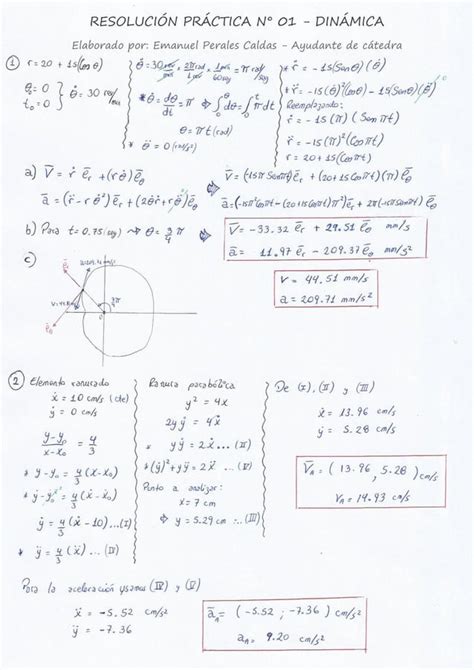 RESOLUCIÓN PRÁCTICA N° 01 - DINÁMICA
Elaborado por: Emanuel Perales Caldas - Ayudante de cátedra
① r = 20 + 15(Cos θ)
θ₀ = 0
t₀ = 0
θ̇ = 30 rev/min
θ̇ = 30 rev/min × 2π rad/1 rev × 1 min/60 seg = π rad/seg
* θ̇ = dθ/dt = π ⇒ ∫dθ = ∫π dt
θ = πt (rad)
θ̈ = 0 (rad/s²)
* ṙ = -15(Sen θ)(θ̇)
* r̈ = -15(θ̇)²(Cos θ) - 15(Sen θ)(θ̈)
Reemplazando:
ṙ = -15(π)(Sen πt)
r̈ = -15(π)²(Cos πt)
r = 20 + 15(Cos πt)
a) V̄ = ṙ ēr + (r θ̇) ēθ
ā = (r̈ - r θ̇²) ēr + (2θ̇ṙ + r θ̈) ēθ
V̄ = (-15π Sen πt) ēr + (20 + 15 Cos πt)(π) ēθ
b) Para t = 0.75 (seg) → θ = 3/4 π
V̄ = -33.32 ēr + 29.51 ēθ mm/s
ā = 11.97 ēr - 209.37 ēθ mm/s²
V = 44.51 mm/s
a = 209.71 mm/s²
c)
② Elemento ranurado
ẋ = 10 cm/s (cte)
ẏ = 0 cm/s
(y - y₀)/(x - x₀) = 4/3
* y - y₀ = 4/3 (x - x₀)
* ẏ - ẏ₀ = 4/3 (ẋ - ẋ₀)
ẏ = 4/3 (ẋ - 10) ... (I)
* ÿ = 4/3 (ẍ) ... (II)
Ranura parabólica
y² = 4x
2y ẏ = 4ẋ
* y ẏ = 2ẋ ... (II)
* (ẏ)² + y ÿ = 2ẍ ... (V)
Punto a analizar:
x = 7 cm
⇒ y = 5.29 cm ... (III)
De (I), (II) y (III)
ẋ = 13.96 cm/s
ẏ = 5.28 cm/s
V̄A = (13.96, 5.28) cm/s
VA = 14.93 cm/s
Para la aceleración usamos (IV) y (V)
ẍ = -5.52 cm/s²
ÿ = -7.36 cm/s²
āA = (-5.52, -7.36) cm/s²
aA = 9.20 cm/s²